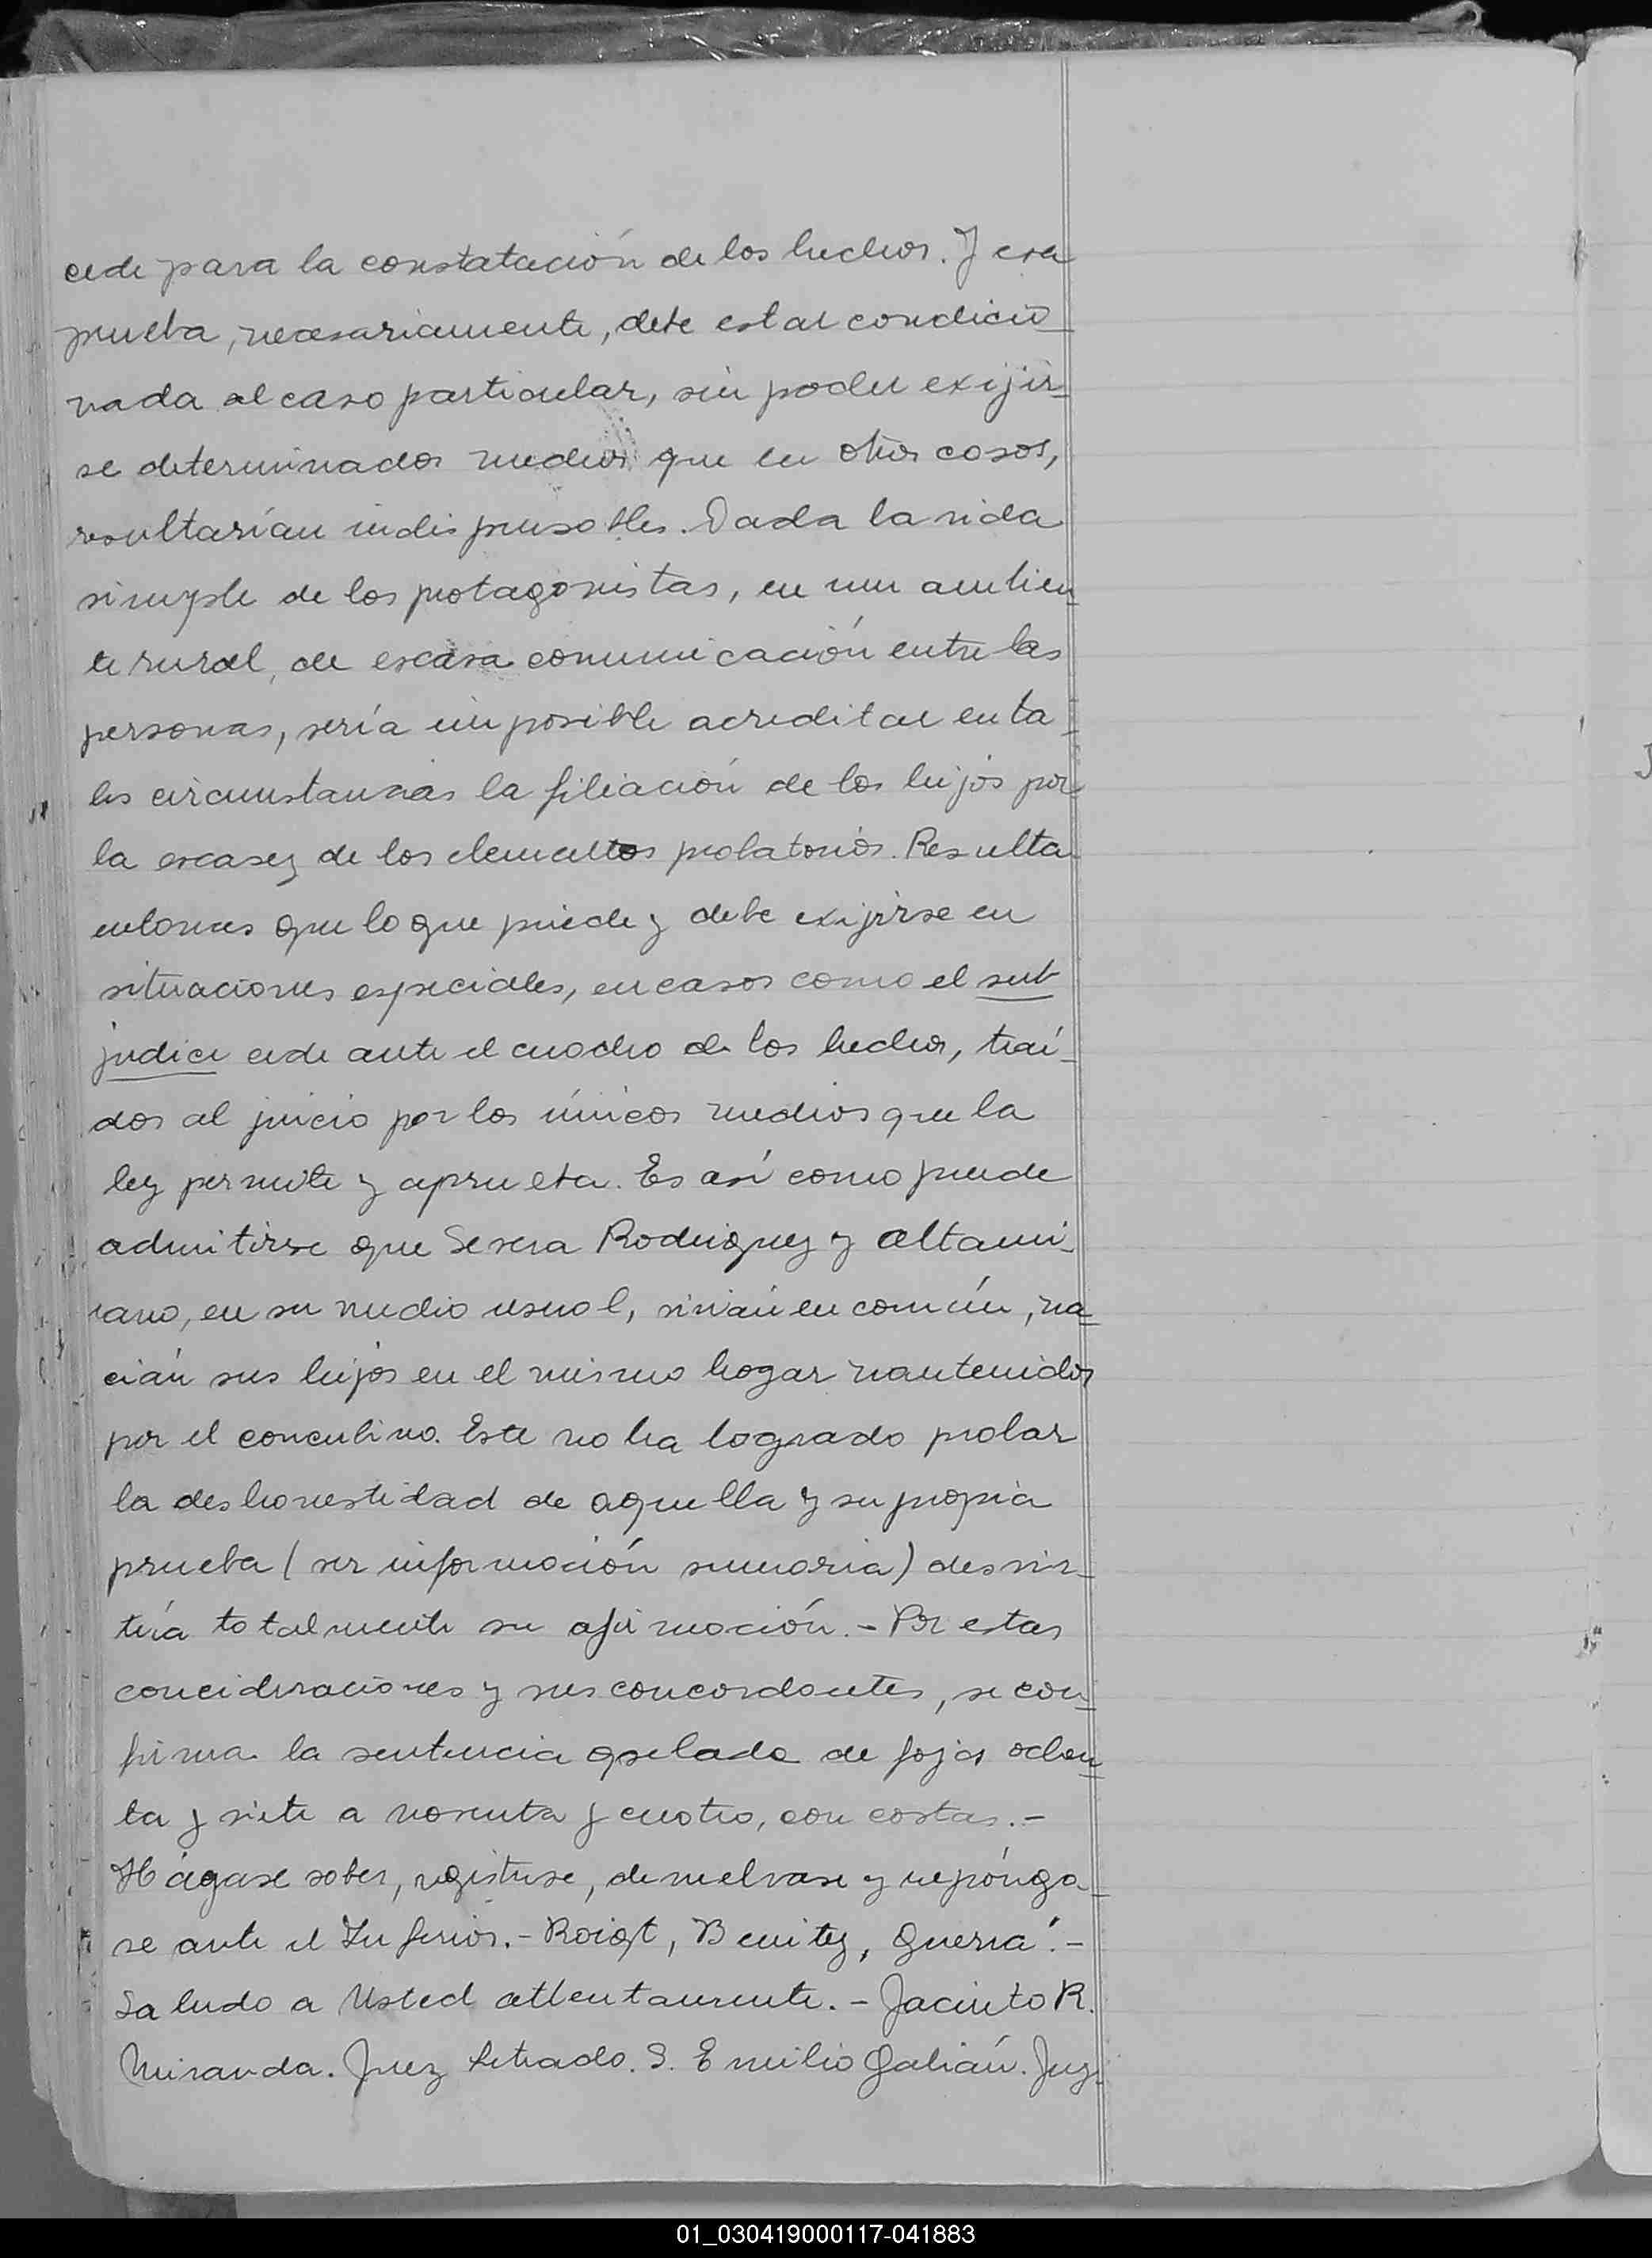 cede para la constatación de los hechos. Y esa
prueba, necesariamente, debe estar condicio_
nada al caso particular, sin poder exijir_
se determinados medios que en otros casos,
resultarían indispensables. Dada la vida
simple de los protagonistas, en un ambien_
te rural, de escasa comunicación entre las
personas, sería imposible acreditar en ta_
les circunstancias la filiación de los hijos por
la escasez de los elementos probatorios. Resulta
entonces que lo que puede y debe exijirse en
situaciones especiales, en casos como el sub
judice cede ante el cuadro de los hechos, traí_
dos al juicio por los únicos medios que la
ley permite y aprueba. Es así como puede
admitirse que Severa Rodriguez y Altami_
rano, en su medio usual, vivían en común, na_
cían sus hijos en el mismo hogar mantenidos
por el concubino. Este no ha logrado probar
la deshonestidad de aquella y su propia
prueba (ver información sumaria) desvir_
túa totalmente su afirmación.- Por estas
concideraciones y sus concordantes, se con_
firma la sentencia apelada de fojas ochen_
ta y siete a noventa y cuatro, con costas.-
Hágase saber, registrese, devuelvase y repónga_
se ante el Inferior.- Roigt, Benitez, Guerra".-
Saludo a Usted atentamente.- Jacinto R.
Miranda. Juez Letrado. S. Emilio Galián. Juz_
01_030419000117-041883